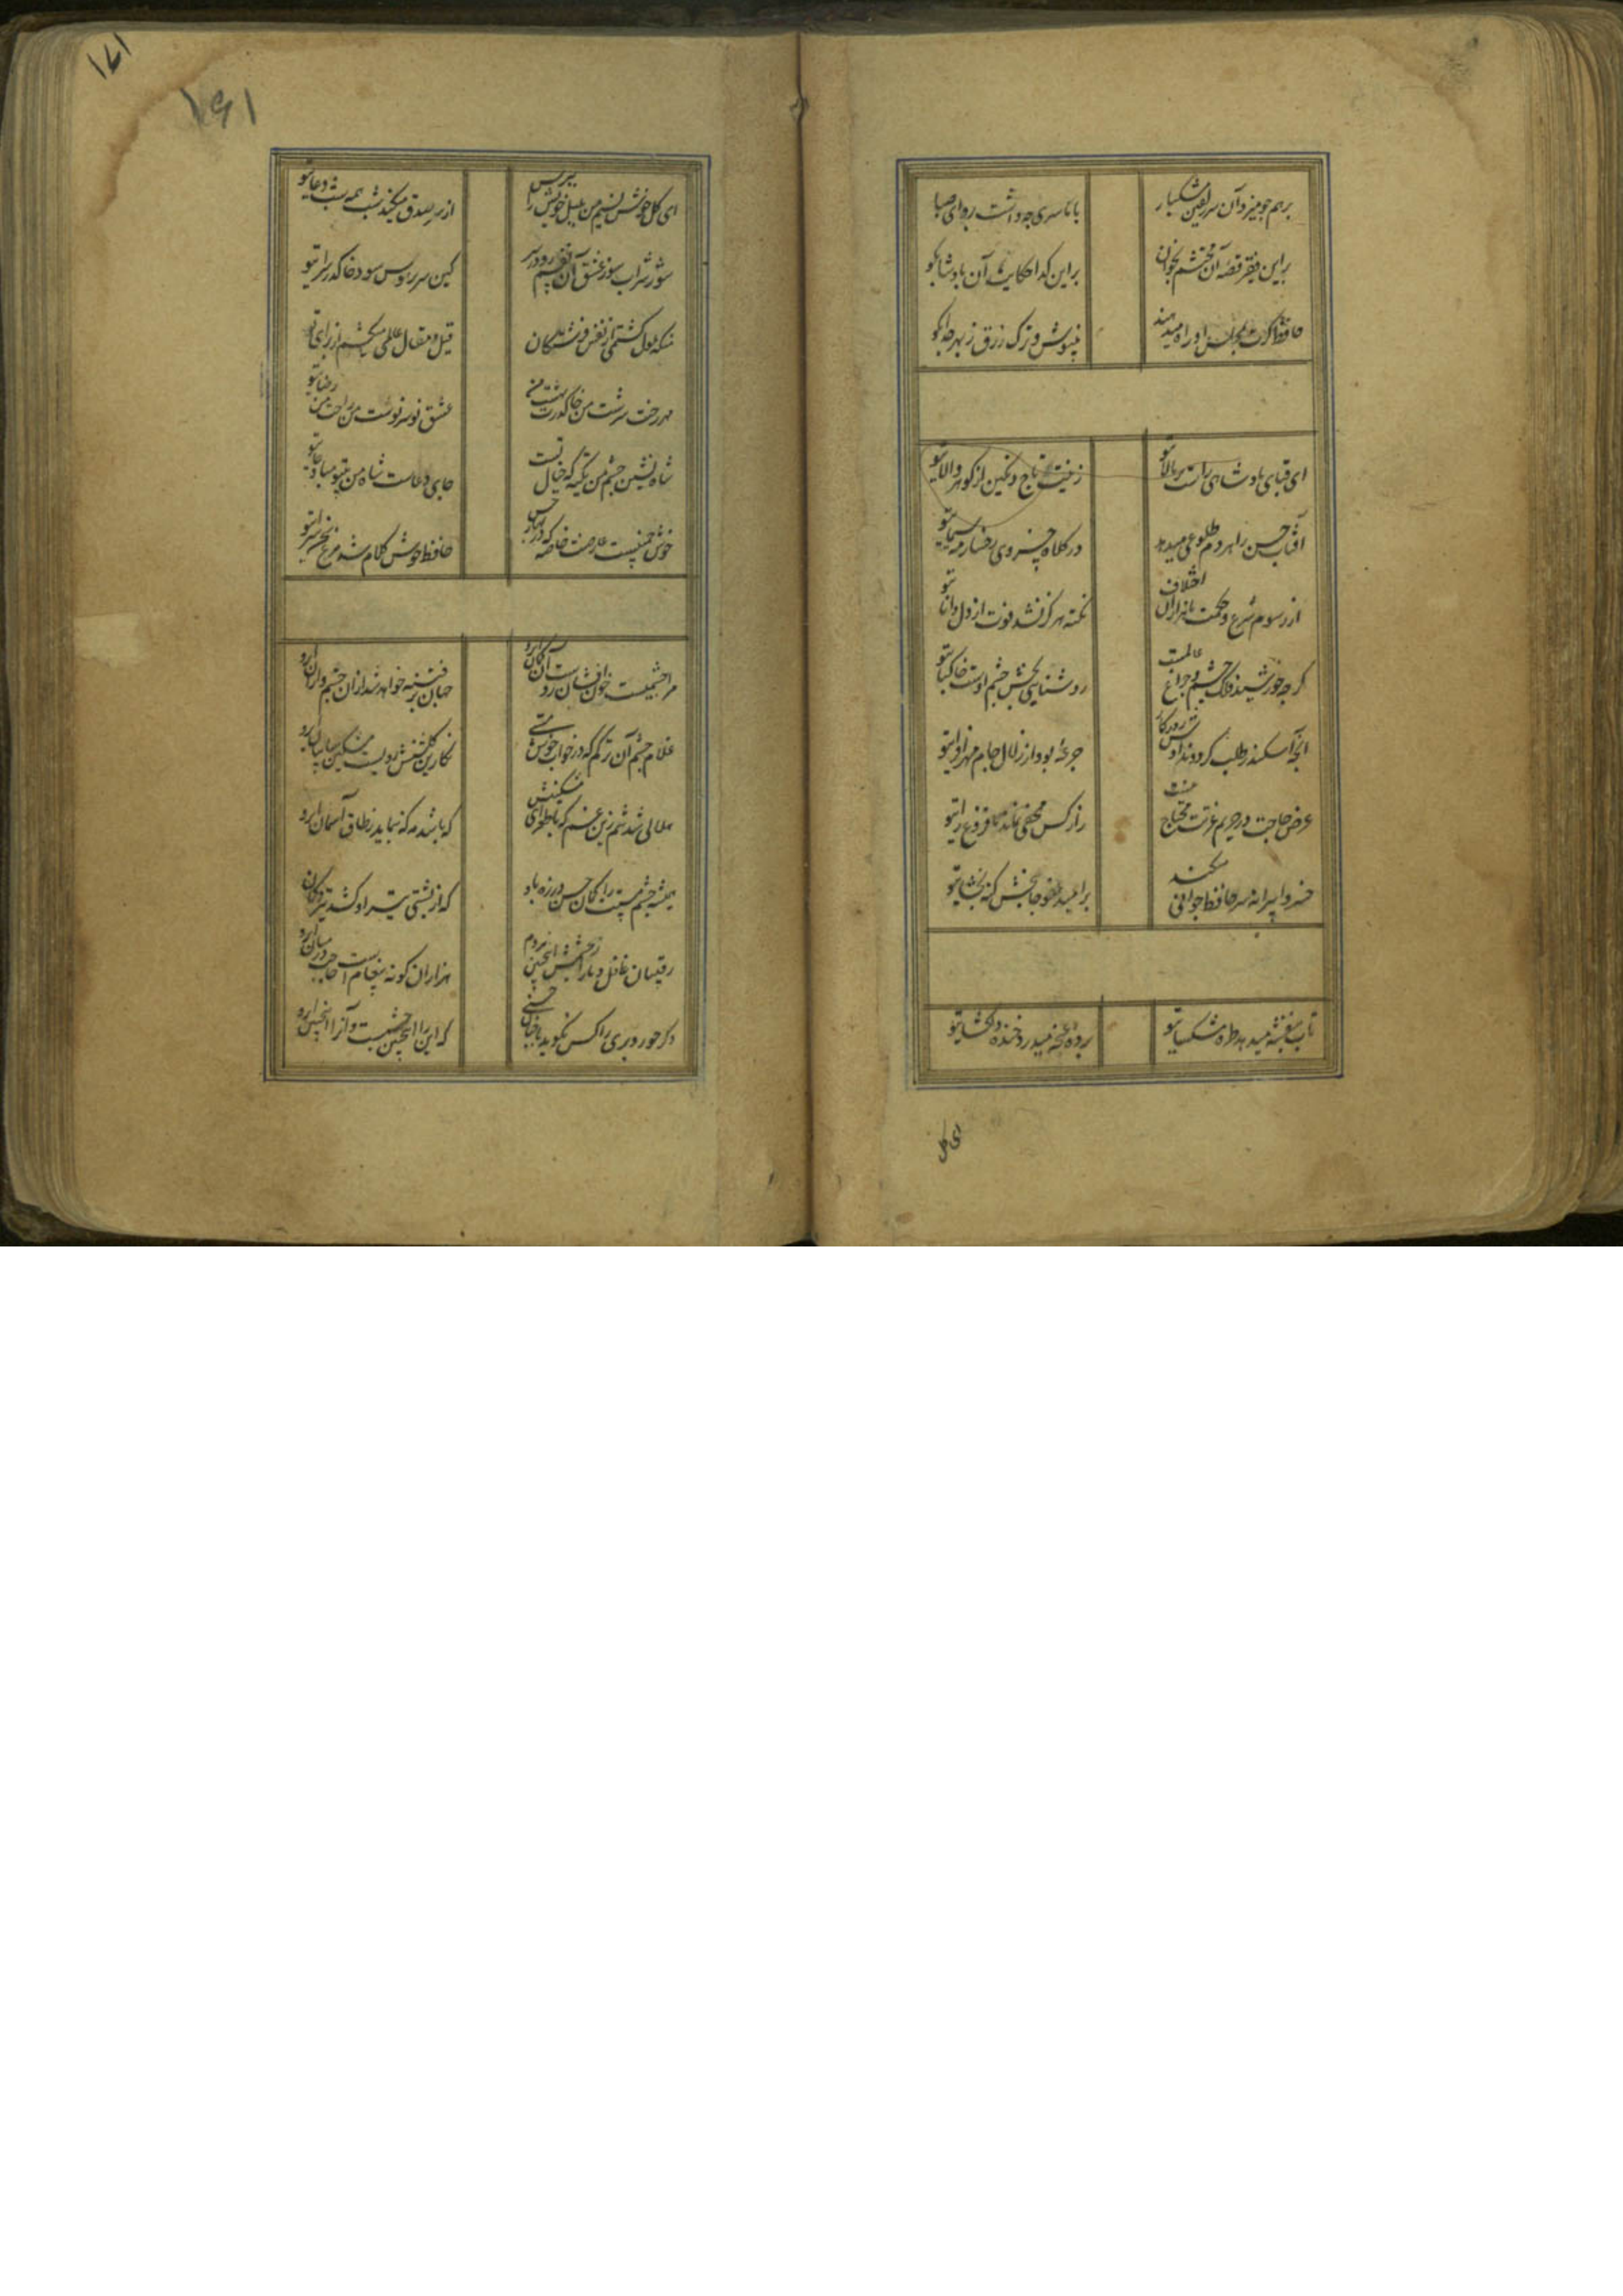 برهم چو میزد آن سر زلفین مشکبار
با ما سری چه داشت ره ای صبا
بر این فقیر قصه آن محتشم بخوان
بر این کدا حکایت آن پادشا بکو
حافظ کرت بمجلس او راه میدهند
می نوش و ترک زرق ز بهر خدا بکو
ای قبای پادشاهی راست بر بالای تو
زینت تاج و نکین از کوهر والای تو
آفتاب حسن را هر دم طلوعی میدهد
در کلاه خسروی رخسار مه سیمای تو
از رسوم شرع و حکمت با هزاران اختلاف
نکته هرکز نشد فوت از دل دانای تو
کرچه خورشید فلک چشم و چراغ عالمست
روشنایی بخش چشم اوست خاک پای تو
آنچه اسکندر طلب کرد و ندادش روزکار
جرعه بود از زلال جام
عرض حاجت در حریم عزتت محتاج نیست
راز کس مخفی نماند با فروغ رای تو
خسروا پیرانه سر حافظ جوانی میکند
بر امید عفو جان بخش کنه بخشای تو
تاب بنفشه میدهد طره مشکسای تو
پرده غنچه میدرد خنده دلکشای تو
ای کل
۱۶۱
۱۶۱
ای کل خوش نسیم من بلبل خویش را مسوز
از سر صدق میکند شب همه شب دعای تو
شور شراب سوز عشق آن نفسم رود ز سر
کین سر پر هوس شود خاک در سرای تو
منکه ملول کشتمی از نفس فرشتکان
قیل و مقال عالمی میکشم از برای تو
مهر رخت سرشت من خاک درت بهشت من
عشق تو سرنوشت من راحت من رضای تو
شاه نشین چشم من تکیه که خیال تست
جای دعاست شاه من بیتو مباد جای تو
خوش چمنیست عارضت خاصه که در بهار حسن
حافظ خوش کلام شد مرغ سخن سرای تو
مرا چشمیست خون افشان ز دست آن کمان ابرو
جهان پر فتنه خواهد شد از ان چشم و از ان ابرو
غلام چشم آن ترکم که در خواب خوش مستی
نکارین کلشنش رویست مشکین سایبان ابرو
هلالی شد تنم زین غم که با طغرای مشکینش
که باشد مه که بنماید ز طاق آسمان ابرو
همیشه چشم مستت را کمان حسن در زه باد
که از پشتی تیر او کشد بر مه کمان ابرو
رقیبان غافل و ما را از چشمش هر دم
هزاران کونه پیغامست و حاجب در میان ابرو
دکر حور و پری را کس نکوید با چنان حسنی
که این را اینچنین چشمست و آنرا آنچنان ابرو